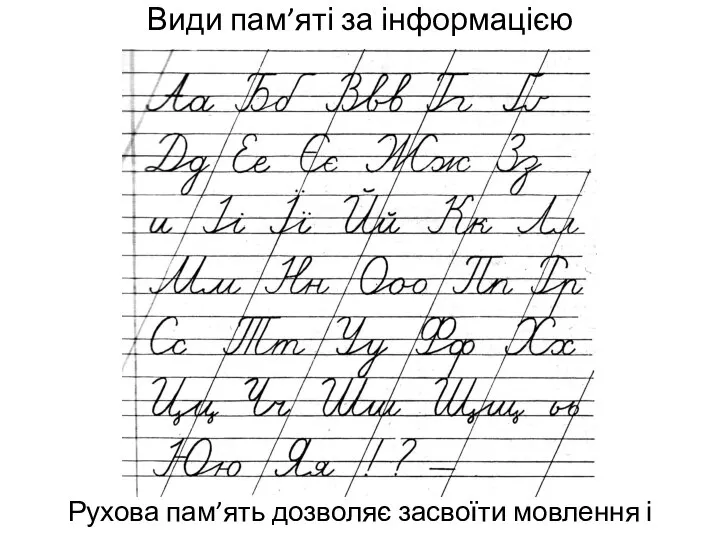 Види пам’яті за інформацією
Аа Бб Ввв Гг Ґґ
Дд Ее Єє Жж Зз
и Іі Її Йй Кк Лл
Мм Нн Ооо Пп Рр
Сс Тт Уу Фф Хх
Цц Чч Шш Щщ ьь
Юю Яя ! ? –
Рухова пам’ять дозволяє засвоїти мовлення і